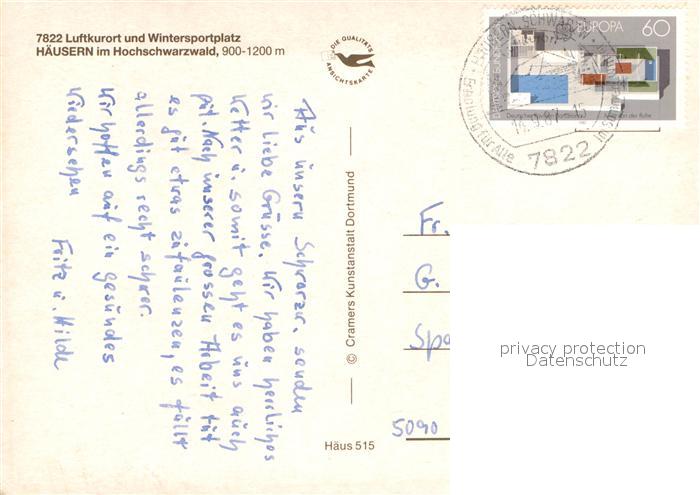 7822 Luftkurort und Wintersportplatz
HÄUSERN im Hochschwarzwald, 900-1200 m
DIE QUALITÄTS
ANSICHTSKARTE
EUROPA 60
7822
Erholung für Alle
Aus unsern Schwarzw. senden
wir liebe Grüsse. Wir haben herrliches
Wetter u somit geht es uns auch
gut. Nach unserer grossen Arbeit tut
es gut etwas zufaulenzen, es fällt
allerdings recht schwer.
Wir hoffen auf ein gesundes
Wiedersehen
Fritz u. Hilde
© Cramers Kunstanstalt Dortmund
Häus 515
Fr.
G.
Spa
5090
privacy protection
Datenschutz